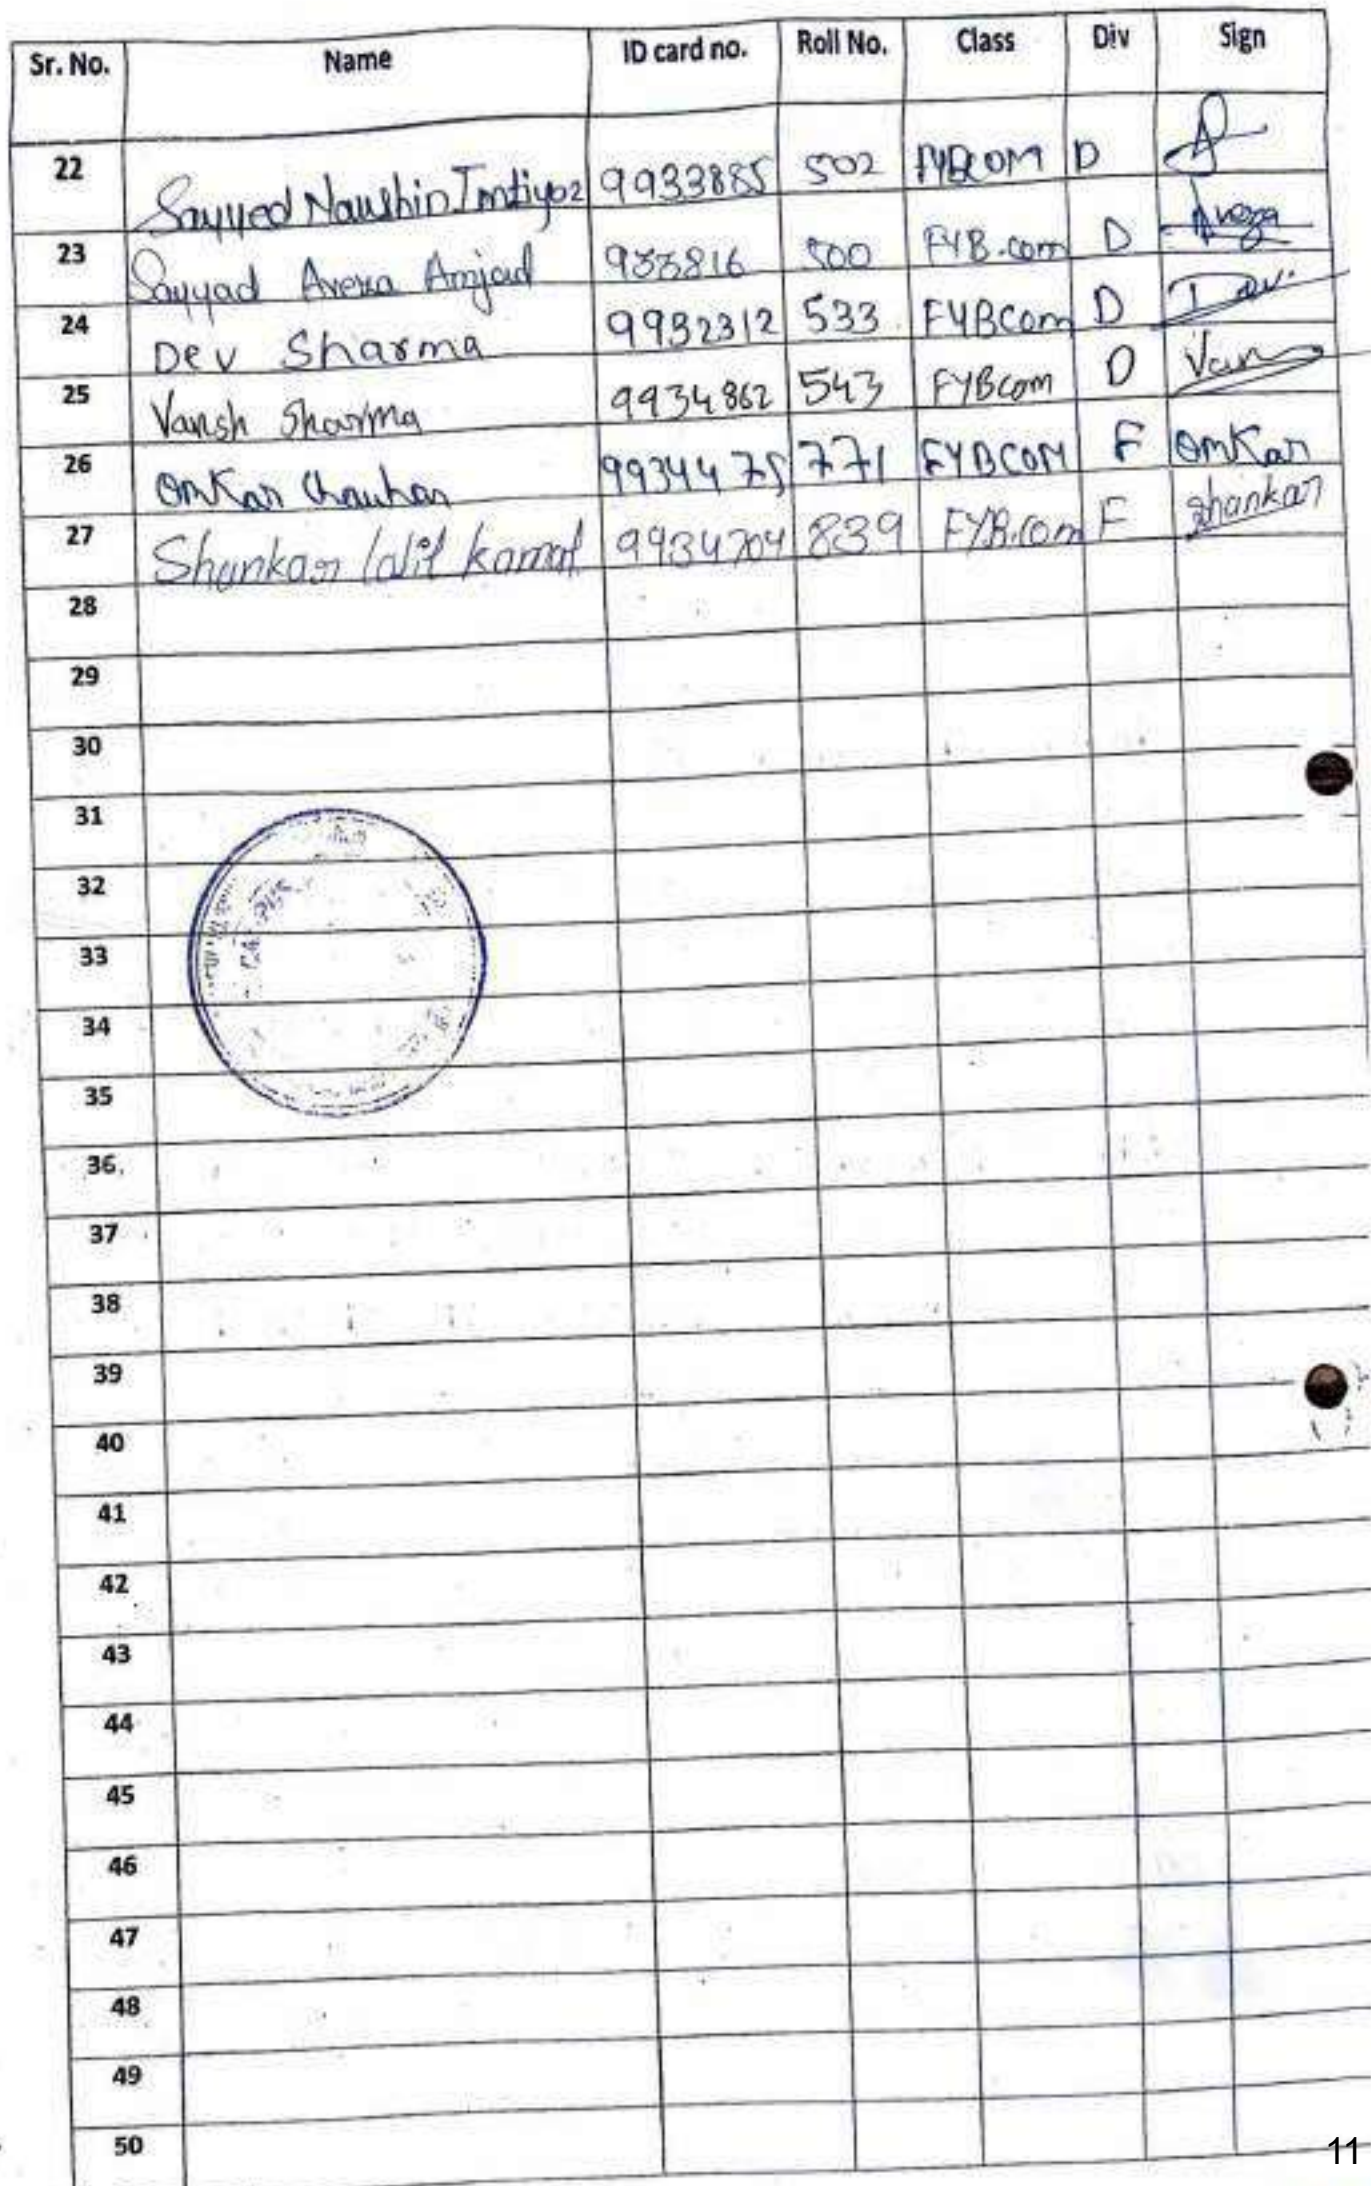 Sr. No. Name ID card no. Roll No. Class Div Sign
22 Sayyed Naushin Imtiyaz 9933885 502 FYBCOM D
23 Sayyad Aveza Amjad 933816 500 FYB.com D Aveza
24 Dev Sharma 9932312 533 FYBCom D Dev
25 Vansh Sharma 9934862 543 FYBcom D Van
26 Omkar Chauhan 9934475 771 FYBCOM F Omkar
27 Shankar lalit kamat 9934704 839 FYB.com F Shankar
28
29
30
31
32
33
34
35
36
37
38
39
40
41
42
43
44
45
46
47
48
49
50
11